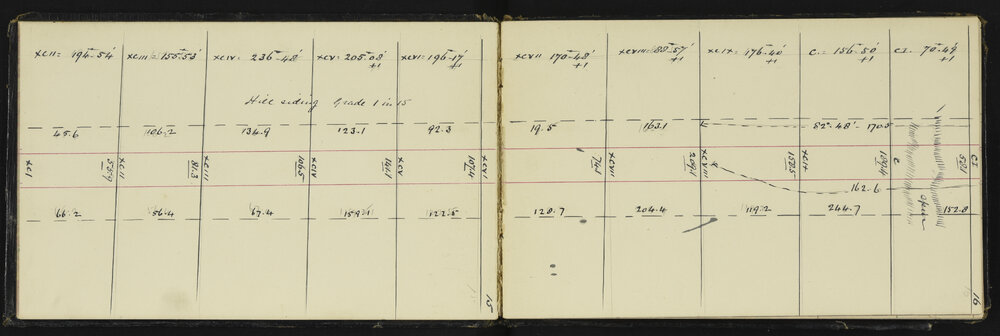 XCII = 194-54' XCIII = 155-53' XCIV = 236-48' XCV = 205-08' +1 XCVI = 196-17' +1
Hill siding Grade 1 in 15
45.6 106.2 134.9 123.1 92.3
XCI XCII XCIII XCIV XCV XCVI
66.2 56.4 67.4 159.1 122.5
15
XCVII 170-48' +1 XCVIII = 88-57' +1 XCIX = 176-40' +1 C. = 156-50' +1 CI. 70-49' +1
19.5 163.1 82°-48' - 170.5
74.5 XCVII 209.1 XCVIII 157.5 XCIX 189.4 C CI
162.6
128.7 204.4 119.2 244.7 Spur 152.8
16